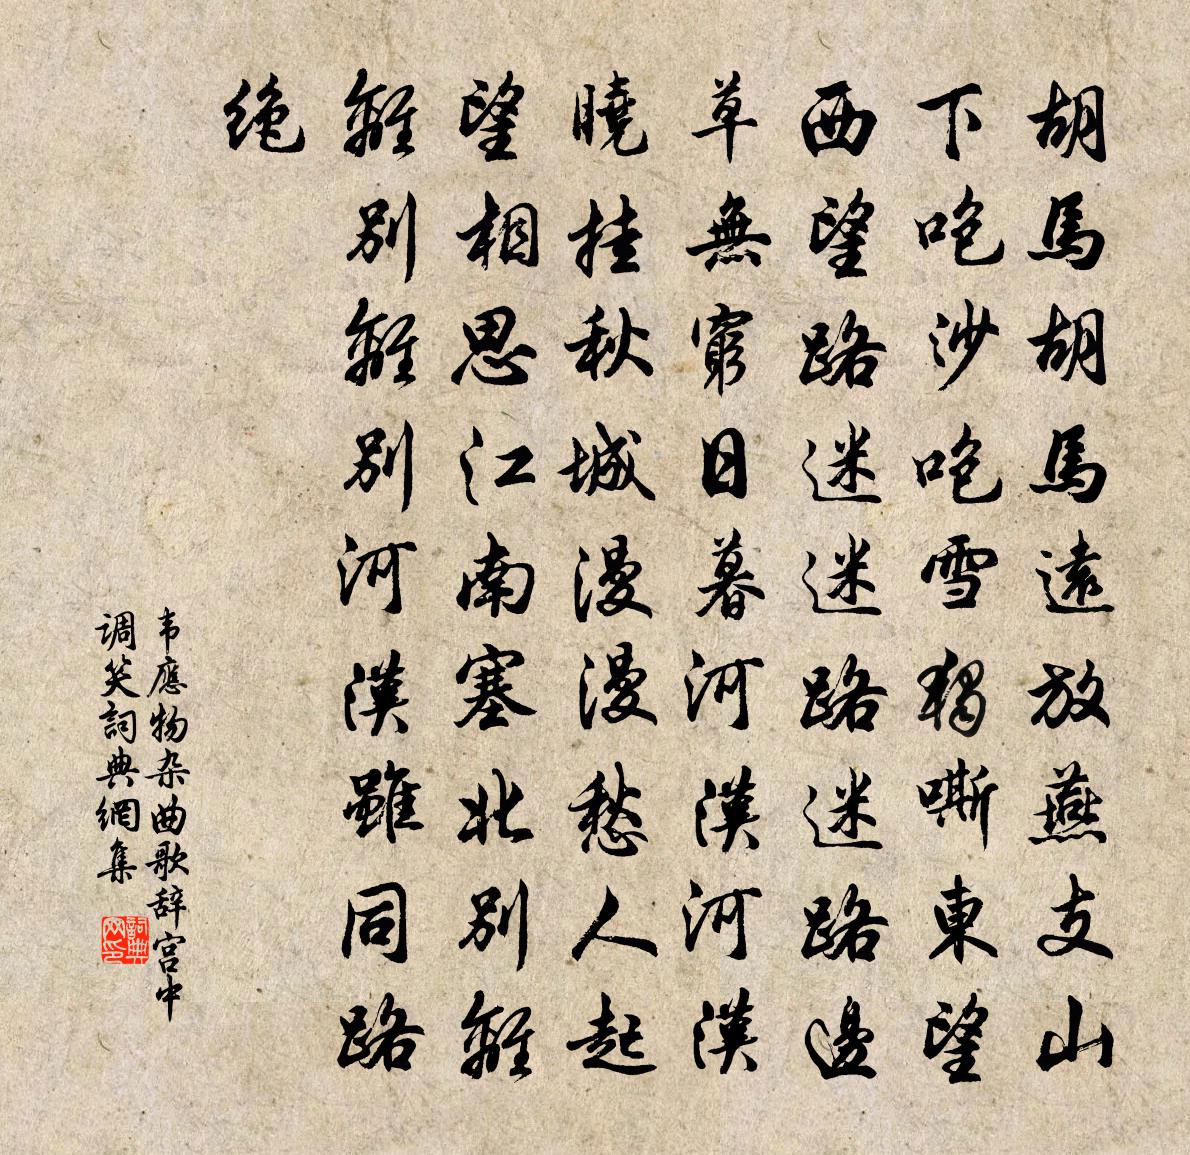 胡馬胡馬遠放燕支山
下咆沙咆雪獨嘶東望
西望路迷迷路迷路邊
草無窮日暮河漢河漢
曉挂秋城漫漫愁人起
望相思江南塞北別離
離別離別河漢雖同路
绝
韦應物杂曲歌辞宫中
调笑詞典網集
詞典
网印